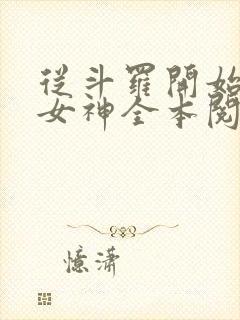 從斗羅開始
女神全本閱
憶瀟